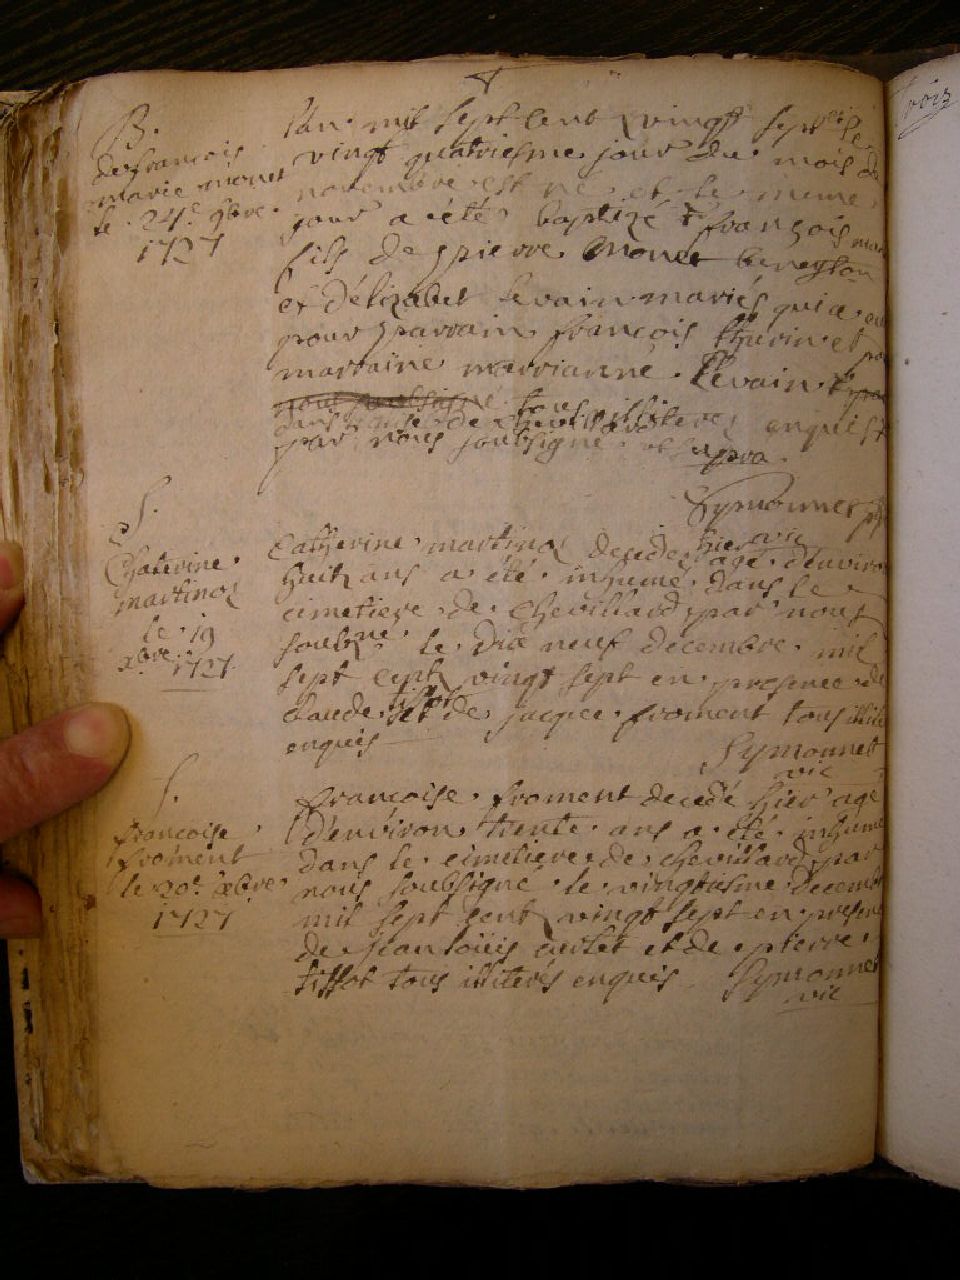 B.
de françois
marie monet
le 24e 9bre
1727
lan mil sept cent vingt sept et le
vingt quatriesme jour du mois de
novembre est né et le meme
jour a été baptizé françois mar
fils de pierre monet
et délizabet levain mariés qui a eu
pour parrain françois thevin et po
marraine marrianne Levain
nous soubsigné tous illiteres enquist
par nous soubsigné ut supra
Symonnet
S.
Chaterine
martinaz
le 19
xbre 1727
Catherine martinaz decede hier age denviro
huit ans a été inhumé dans le
cimetiere de Chevillard par nous
soubzne le dix neuf decembre mil
sept cent vingt sept en presence de
claude tissot et de jacque froment tous illite
enquis
Symonnet
vic
S.
francoise
froment
le 20e xbre
1727
francoise froment decedé hier agé
d'environ trente ans a été inhumé
dans le cimetiere de chevillard par
nous soubsigné le vingtiesme decemb
mil sept cent vingt sept en presen
de jean loüis autet et de pierre
tissot tous illiterés enquis Symonnet
vic
voiz